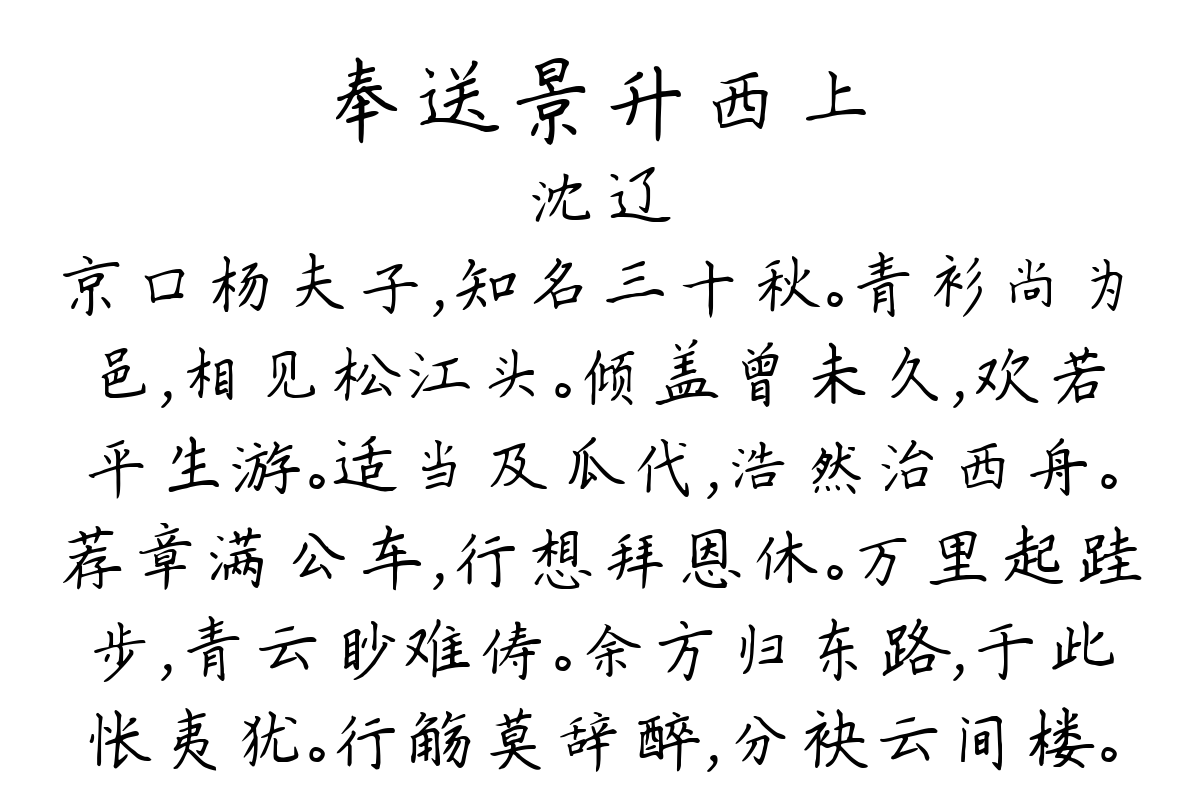 奉送景升西上
沈辽
京口杨夫子,知名三十秋。青衫尚为
邑,相见松江头。倾盖曾未久,欢若
平生游。适当及瓜代,浩然治西舟。
荐章满公车,行想拜恩休。万里起跬
步,青云眇难俦。余方归东路,于此
怅夷犹。行觞莫辞醉,分袂云间楼。